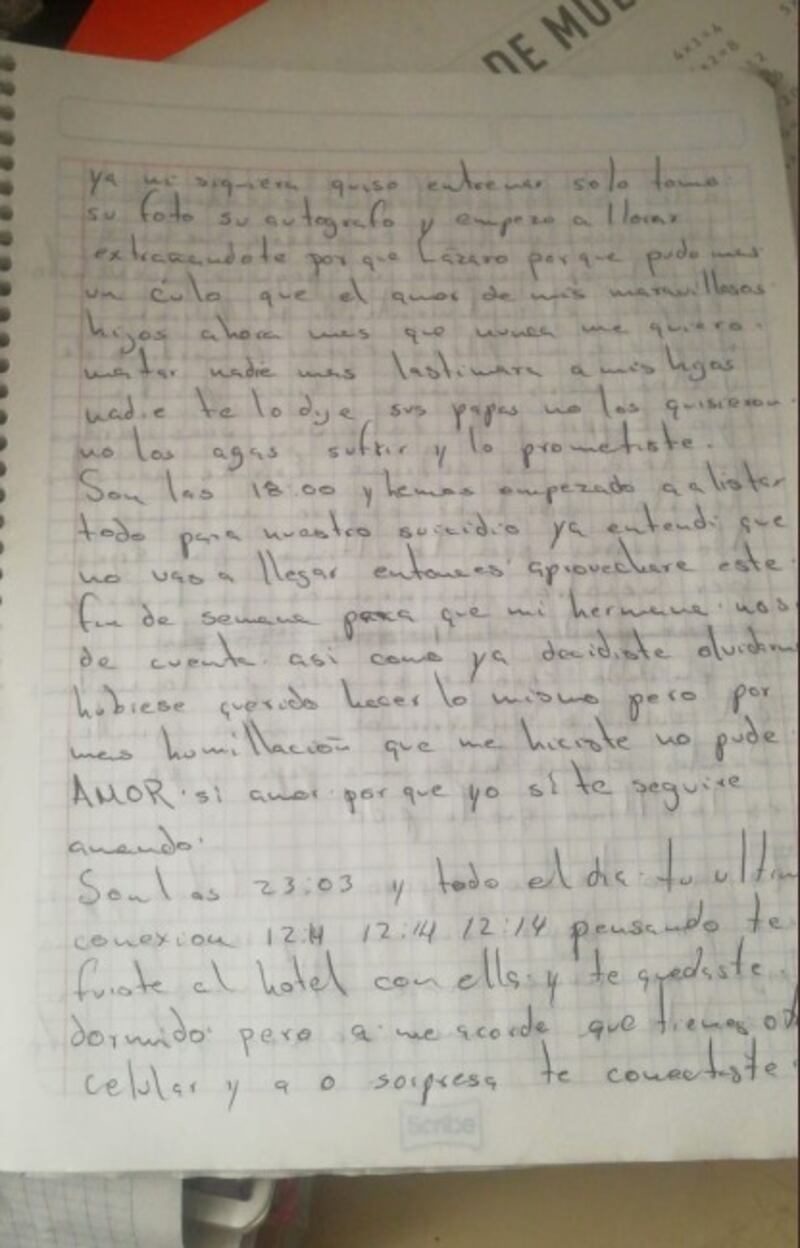 DE MU
4x1=4
ya ni siquiera quiso entrenar solo tomo
su foto su autografo y empezo a llorar
extrañandote por que Lázaro porque pudo mas
un culo que el amor de mis maravillosos
hijos ahora mas que nunca me quiero.
matar nadie mas lastimara a mis hijos
nadie te lo dije sus papas no los quisieron
no los agas sufrir y lo prometiste.
Son las 18:00 y hemos empezado a alistar
todo para nuestro suicidio ya entendi que
no vas a llegar entonces aprovechare este
fin de semana para que mi hermana nos
de cuenta asi como ya decidiste olvidarn
hubiese querido hacer lo mismo pero por
mas humillación que me hiciste no pude
AMOR si amor por que yo si te seguire
amando.
Son las 23:03 y todo el dia tu ultim
conexion 12:14 12:14 12:14 pensando te
fuiste al hotel con ella y te quedaste
dormido pero a me acorde que tienes ot
celular y a o sorpresa te conectaste
Scribe